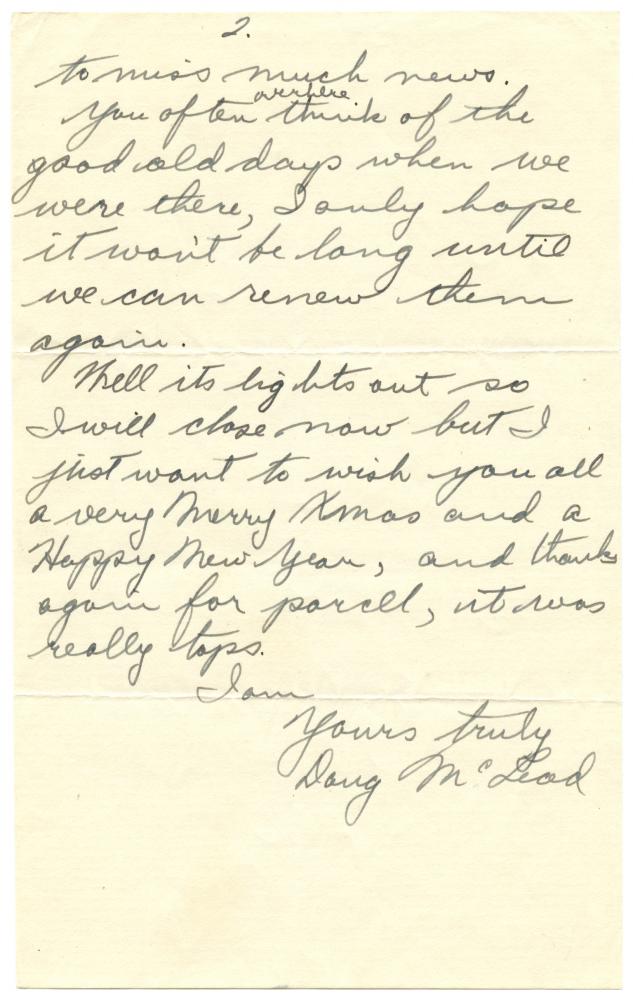 2.
to miss much news.
overhere
You often think of the
good old days when we
were there, I only hope
it won't be long until
we can renew them
again.
Well its lights out so
I will close now but I
just want to wish you all
a very Merry Xmas and a
Happy New Year, and thanks
again for parcell, it was
really tops.
I am
Yours truly
Doug McLeod